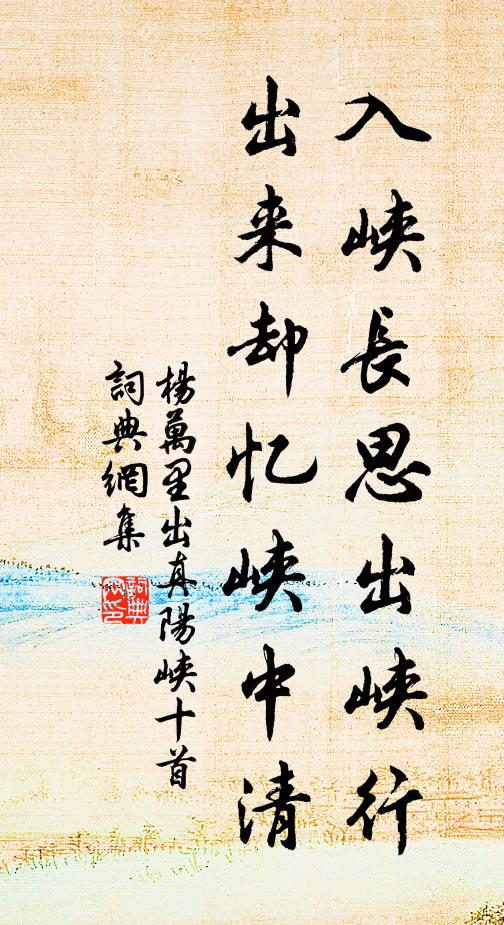 入峡長思出峡行
出来却忆峡中清
楊萬里出真陽峡十首
詞典網集